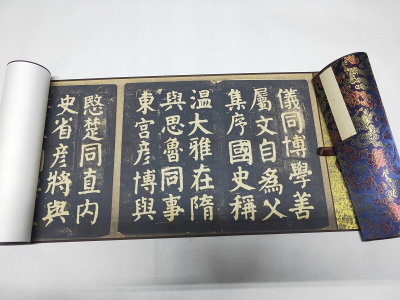 儀同博學善
屬文自為父
集序國史稱
温大雅在隋
與思魯同事
東宫彦博與
愍楚同直内
史省彦將與